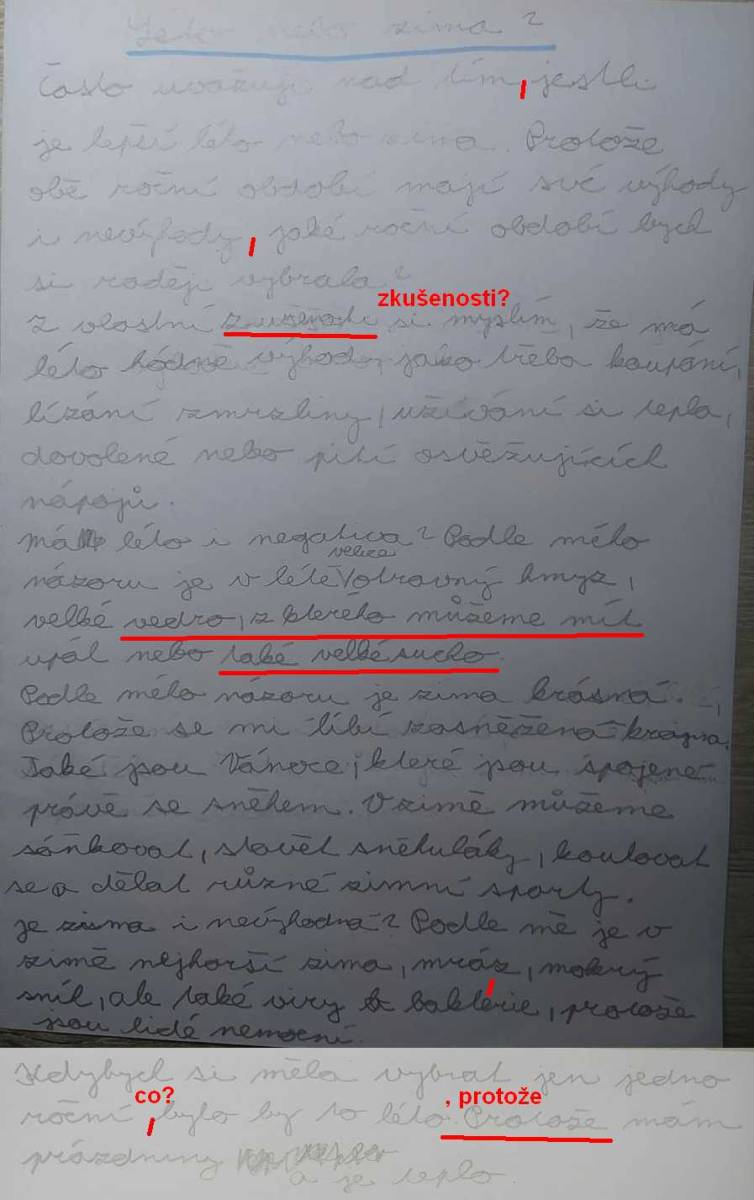 Léto nebo zima?
Často uvažuji nad tím, jestli
je lepší léto nebo zima. Protože
obě roční období mají své výhody
i nevýhody, jaké roční období bych
si raději vybrala?
zkušenosti?
Z vlastní si myslím, že má
léto hodně výhod, jako třeba koupání,
lízání zmrzliny, užívání si tepla,
dovolené nebo pití osvěžujících
nápojů.
Má léto i negativa? Podle mého
velice
názoru je v létě otravný hmyz,
velké vedro, z kterého můžeme mít
úpal nebo také velké sucho.
Podle mého názoru je zima krásná.
Protože se mi líbí zasněžená krajina.
Také jsou Vánoce, které jsou spojené
právě se sněhem. V zimě můžeme
sáňkovat, stavět sněhuláky, koulovat
se a dělat různé zimní sporty.
Je zima i nevýhodná? Podle mě je v
zimě nejhorší zima, mráz, mokrý
sníh, ale také viry a baktérie, protože
jsou lidé nemocní.
Kdybych si měla vybrat jen jedno
co? , protože
roční bylo by to léto. Protože mám
prázdniny
a je teplo.